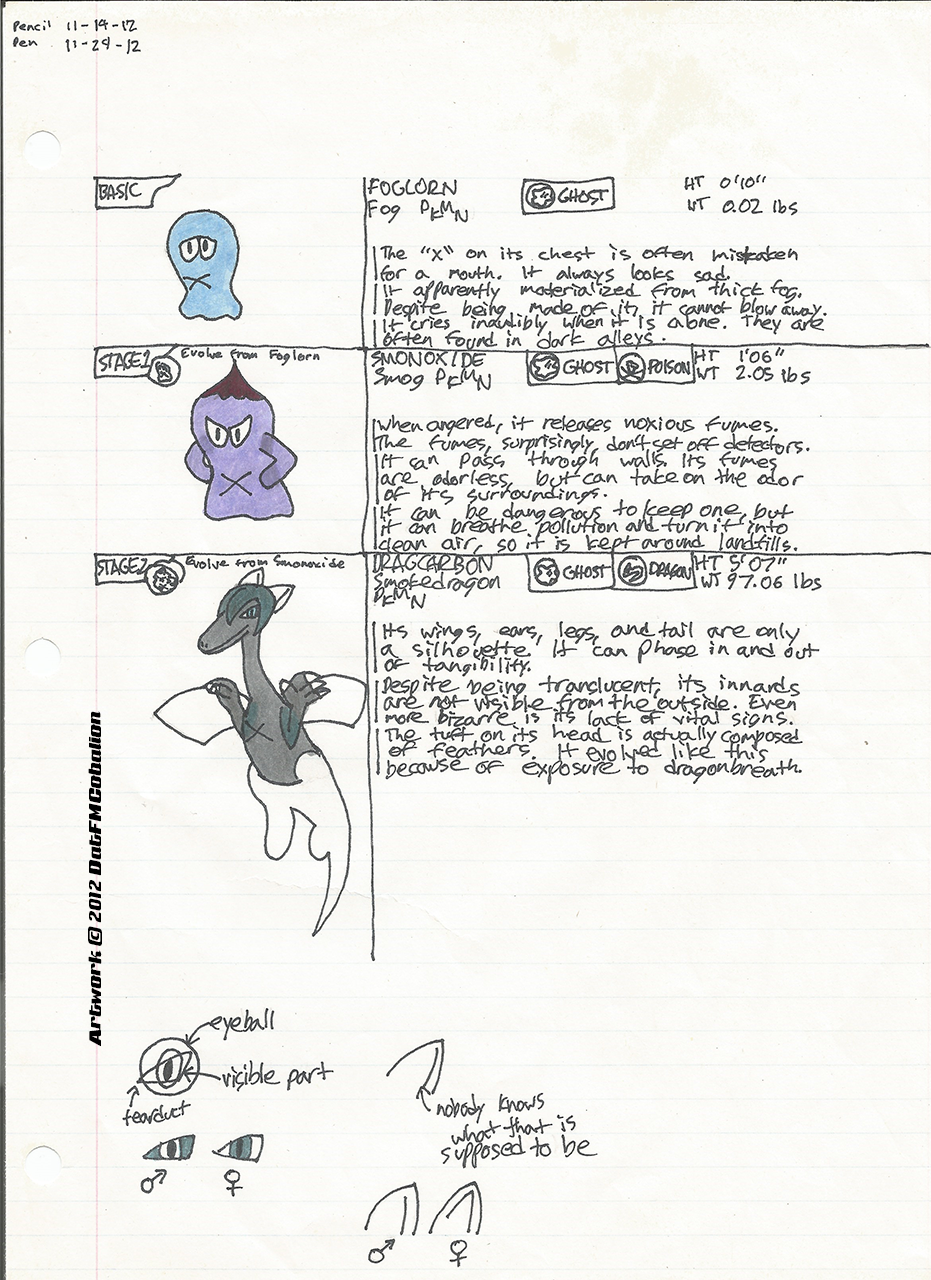 Pencil 11-14-12
Pen 11-24-12
BASIC
FOGLORN
Fog PKMN
GHOST
HT 0'10"
WT 0.02 lbs
The "X" on its chest is often mistaken
for a mouth. It always looks sad.
It apparently materialized from thick fog.
Despite being made of it, it cannot blow away.
It cries inaudibly when it is alone. They are
often found in dark alleys.
STAGE1
Evolve from Foglorn
SMONOXIDE
Smog PKMN
GHOST
POISON
HT 1'06"
WT 2.05 lbs
When angered, it releases noxious fumes.
The fumes, surprisingly, don't set off detectors.
It can pass through walls. Its fumes
are odorless, but can take on the odor
of its surroundings.
It can be dangerous to keep one, but
it can breathe pollution and turn it into
clean air, so it is kept around landfills.
STAGE2
Evolve from Smonoxide
DRAGCARBON
Smokedragon
PKMN
GHOST
DRAGON
HT 5'07"
WT 97.06 lbs
Its wings, ears, legs, and tail are only
a silhouette. It can phase in and out
of tangibility.
Despite being translucent, its innards
are not visible from the outside. Even
more bizarre is its lack of vital signs.
The tuft on its head is actually composed
of feathers. It evolved like this
because of exposure to dragonbreath.
Artwork © 2012 DatFMCobalion
eyeball
visible part
tearduct
♂ ♀
nobody knows
what that is
supposed to be
♂ ♀